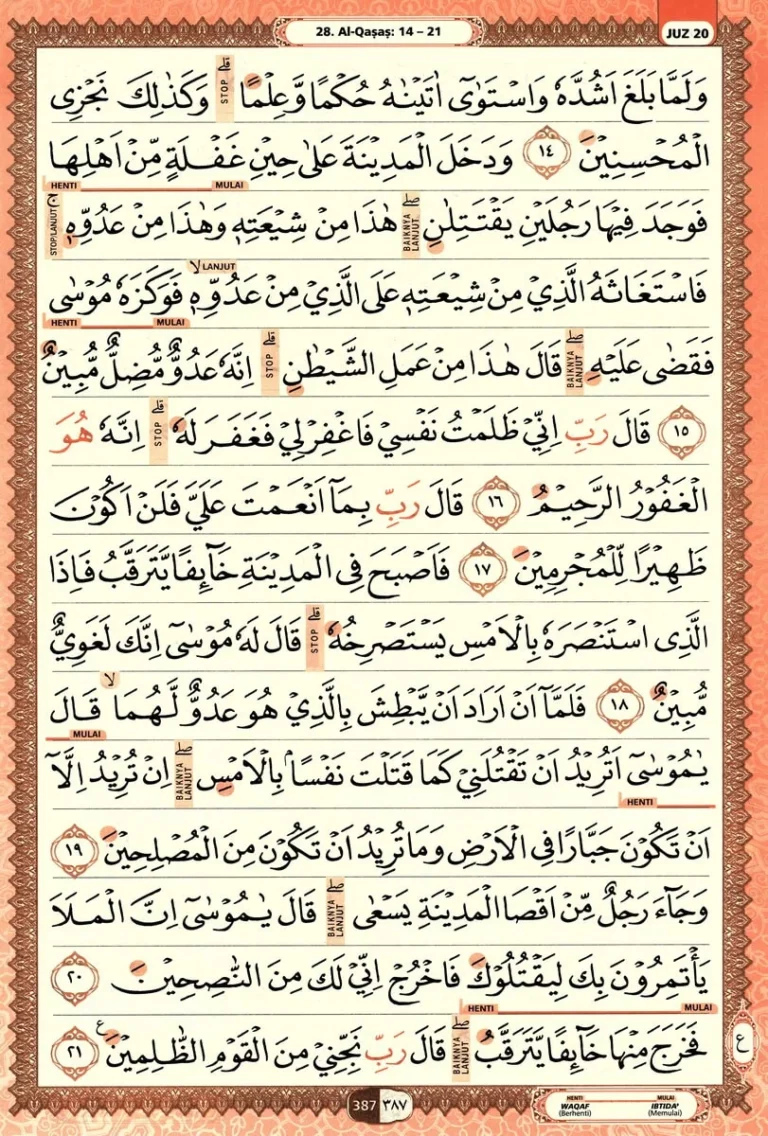 28. Al-Qaṣaṣ: 14 – 21
JUZ 20
وَلَمَّا بَلَغَ اَشُدَّهٗ وَاسْتَوٰٓى اٰتَيْنٰهُ حُكْمًا وَّعِلْمًاۗ وَكَذٰلِكَ نَجْزِى
STOP
الْمُحْسِنِيْنَ ١٤ وَدَخَلَ الْمَدِيْنَةَ عَلٰى حِيْنِ غَفْلَةٍ مِّنْ اَهْلِهَا
MULAI HENTI
فَوَجَدَ فِيْهَا رَجُلَيْنِ يَقْتَتِلٰنِۖ هٰذَا مِنْ شِيْعَتِهٖ وَهٰذَا مِنْ عَدُوِّهٖۚ
BAIKNYA LANJUT STOP LANJUT
LANJUT
فَاسْتَغَاثَهُ الَّذِيْ مِنْ شِيْعَتِهٖ عَلَى الَّذِيْ مِنْ عَدُوِّهٖ ۙفَوَكَزَهٗ مُوْسٰى
MULAI HENTI
فَقَضٰى عَلَيْهِۖ قَالَ هٰذَا مِنْ عَمَلِ الشَّيْطٰنِۗ اِنَّهٗ عَدُوٌّ مُّضِلٌّ مُّبِيْنٌ
BAIKNYA LANJUT STOP
١٥ قَالَ رَبِّ اِنِّيْ ظَلَمْتُ نَفْسِيْ فَاغْفِرْ لِيْ فَغَفَرَ لَهٗۗ اِنَّهٗ هُوَ
STOP
الْغَفُوْرُ الرَّحِيْمُ ١٦ قَالَ رَبِّ بِمَآ اَنْعَمْتَ عَلَيَّ فَلَنْ اَكُوْنَ
ظَهِيْرًا لِّلْمُجْرِمِيْنَ ١٧ فَاَصْبَحَ فِى الْمَدِيْنَةِ خَاۤىِٕفًا يَّتَرَقَّبُ فَاِذَا
الَّذِى اسْتَنْصَرَهٗ بِالْاَمْسِ يَسْتَصْرِخُهٗۗ قَالَ لَهٗ مُوْسٰٓى اِنَّكَ لَغَوِيٌّ
STOP
مُّبِيْنٌ ١٨ فَلَمَّآ اَنْ اَرَادَ اَنْ يَّبْطِشَ بِالَّذِيْ هُوَ عَدُوٌّ لَّهُمَاۙ قَالَ
MULAI
يٰمُوْسٰٓى اَتُرِيْدُ اَنْ تَقْتُلَنِيْ كَمَا قَتَلْتَ نَفْسًاۢ بِالْاَمْسِۖ اِنْ تُرِيْدُ اِلَّآ
BAIKNYA LANJUT
HENTI
اَنْ تَكُوْنَ جَبَّارًا فِى الْاَرْضِ وَمَا تُرِيْدُ اَنْ تَكُوْنَ مِنَ الْمُصْلِحِيْنَ ١٩
وَجَاۤءَ رَجُلٌ مِّنْ اَقْصَا الْمَدِيْنَةِ يَسْعٰىۖ قَالَ يٰمُوْسٰٓى اِنَّ الْمَلَاَ
BAIKNYA LANJUT
يَأْتَمِرُوْنَ بِكَ لِيَقْتُلُوْكَ فَاخْرُجْ اِنِّيْ لَكَ مِنَ النّٰصِحِيْنَ ٢٠
MULAI HENTI
فَخَرَجَ مِنْهَا خَاۤىِٕفًا يَّتَرَقَّبُۖ قَالَ رَبِّ نَجِّنِيْ مِنَ الْقَوْمِ الظّٰلِمِيْنَ ࣖ ٢١
BAIKNYA LANJUT
ع
387 ٣٨٧
HENTI MULAI
WAQAF IBTIDA'
(Berhenti) (Memulai)